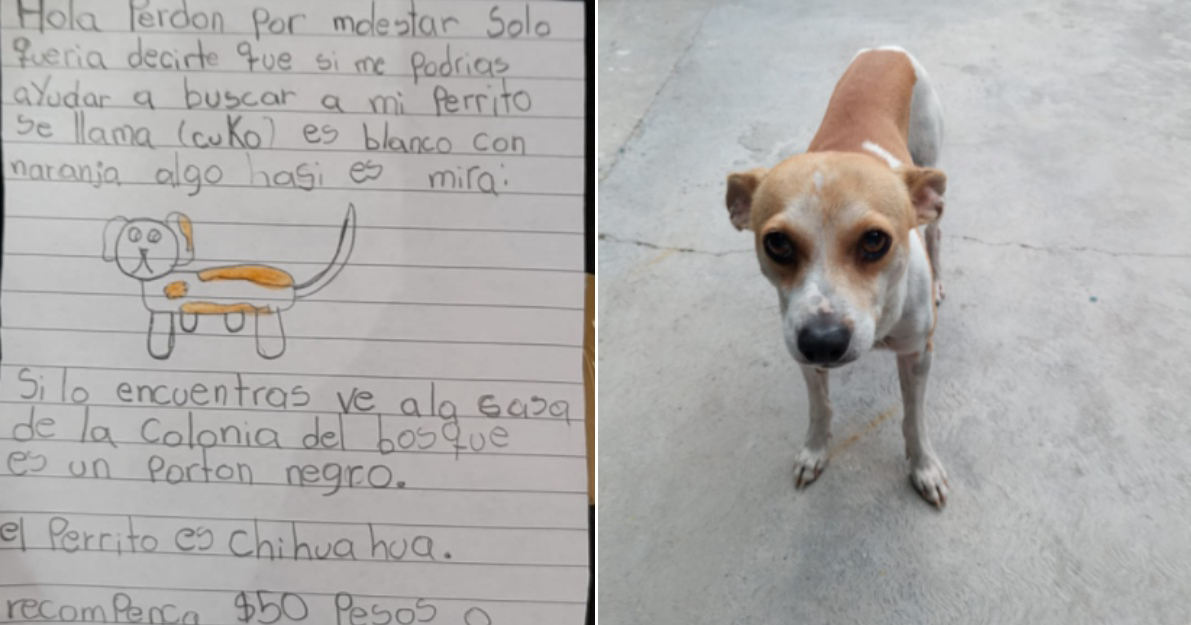 Hola Perdon por molestar Solo
queria decirte que si me Podrias
ayudar a buscar a mi Perrito
se llama (cuko) es blanco con
naranja algo hasi es mira:
Si lo encuentras ve ala casa
de la Colonia del bosque
es un Porton negro.
el Perrito es chihuahua.
recompenca $50 Pesos o